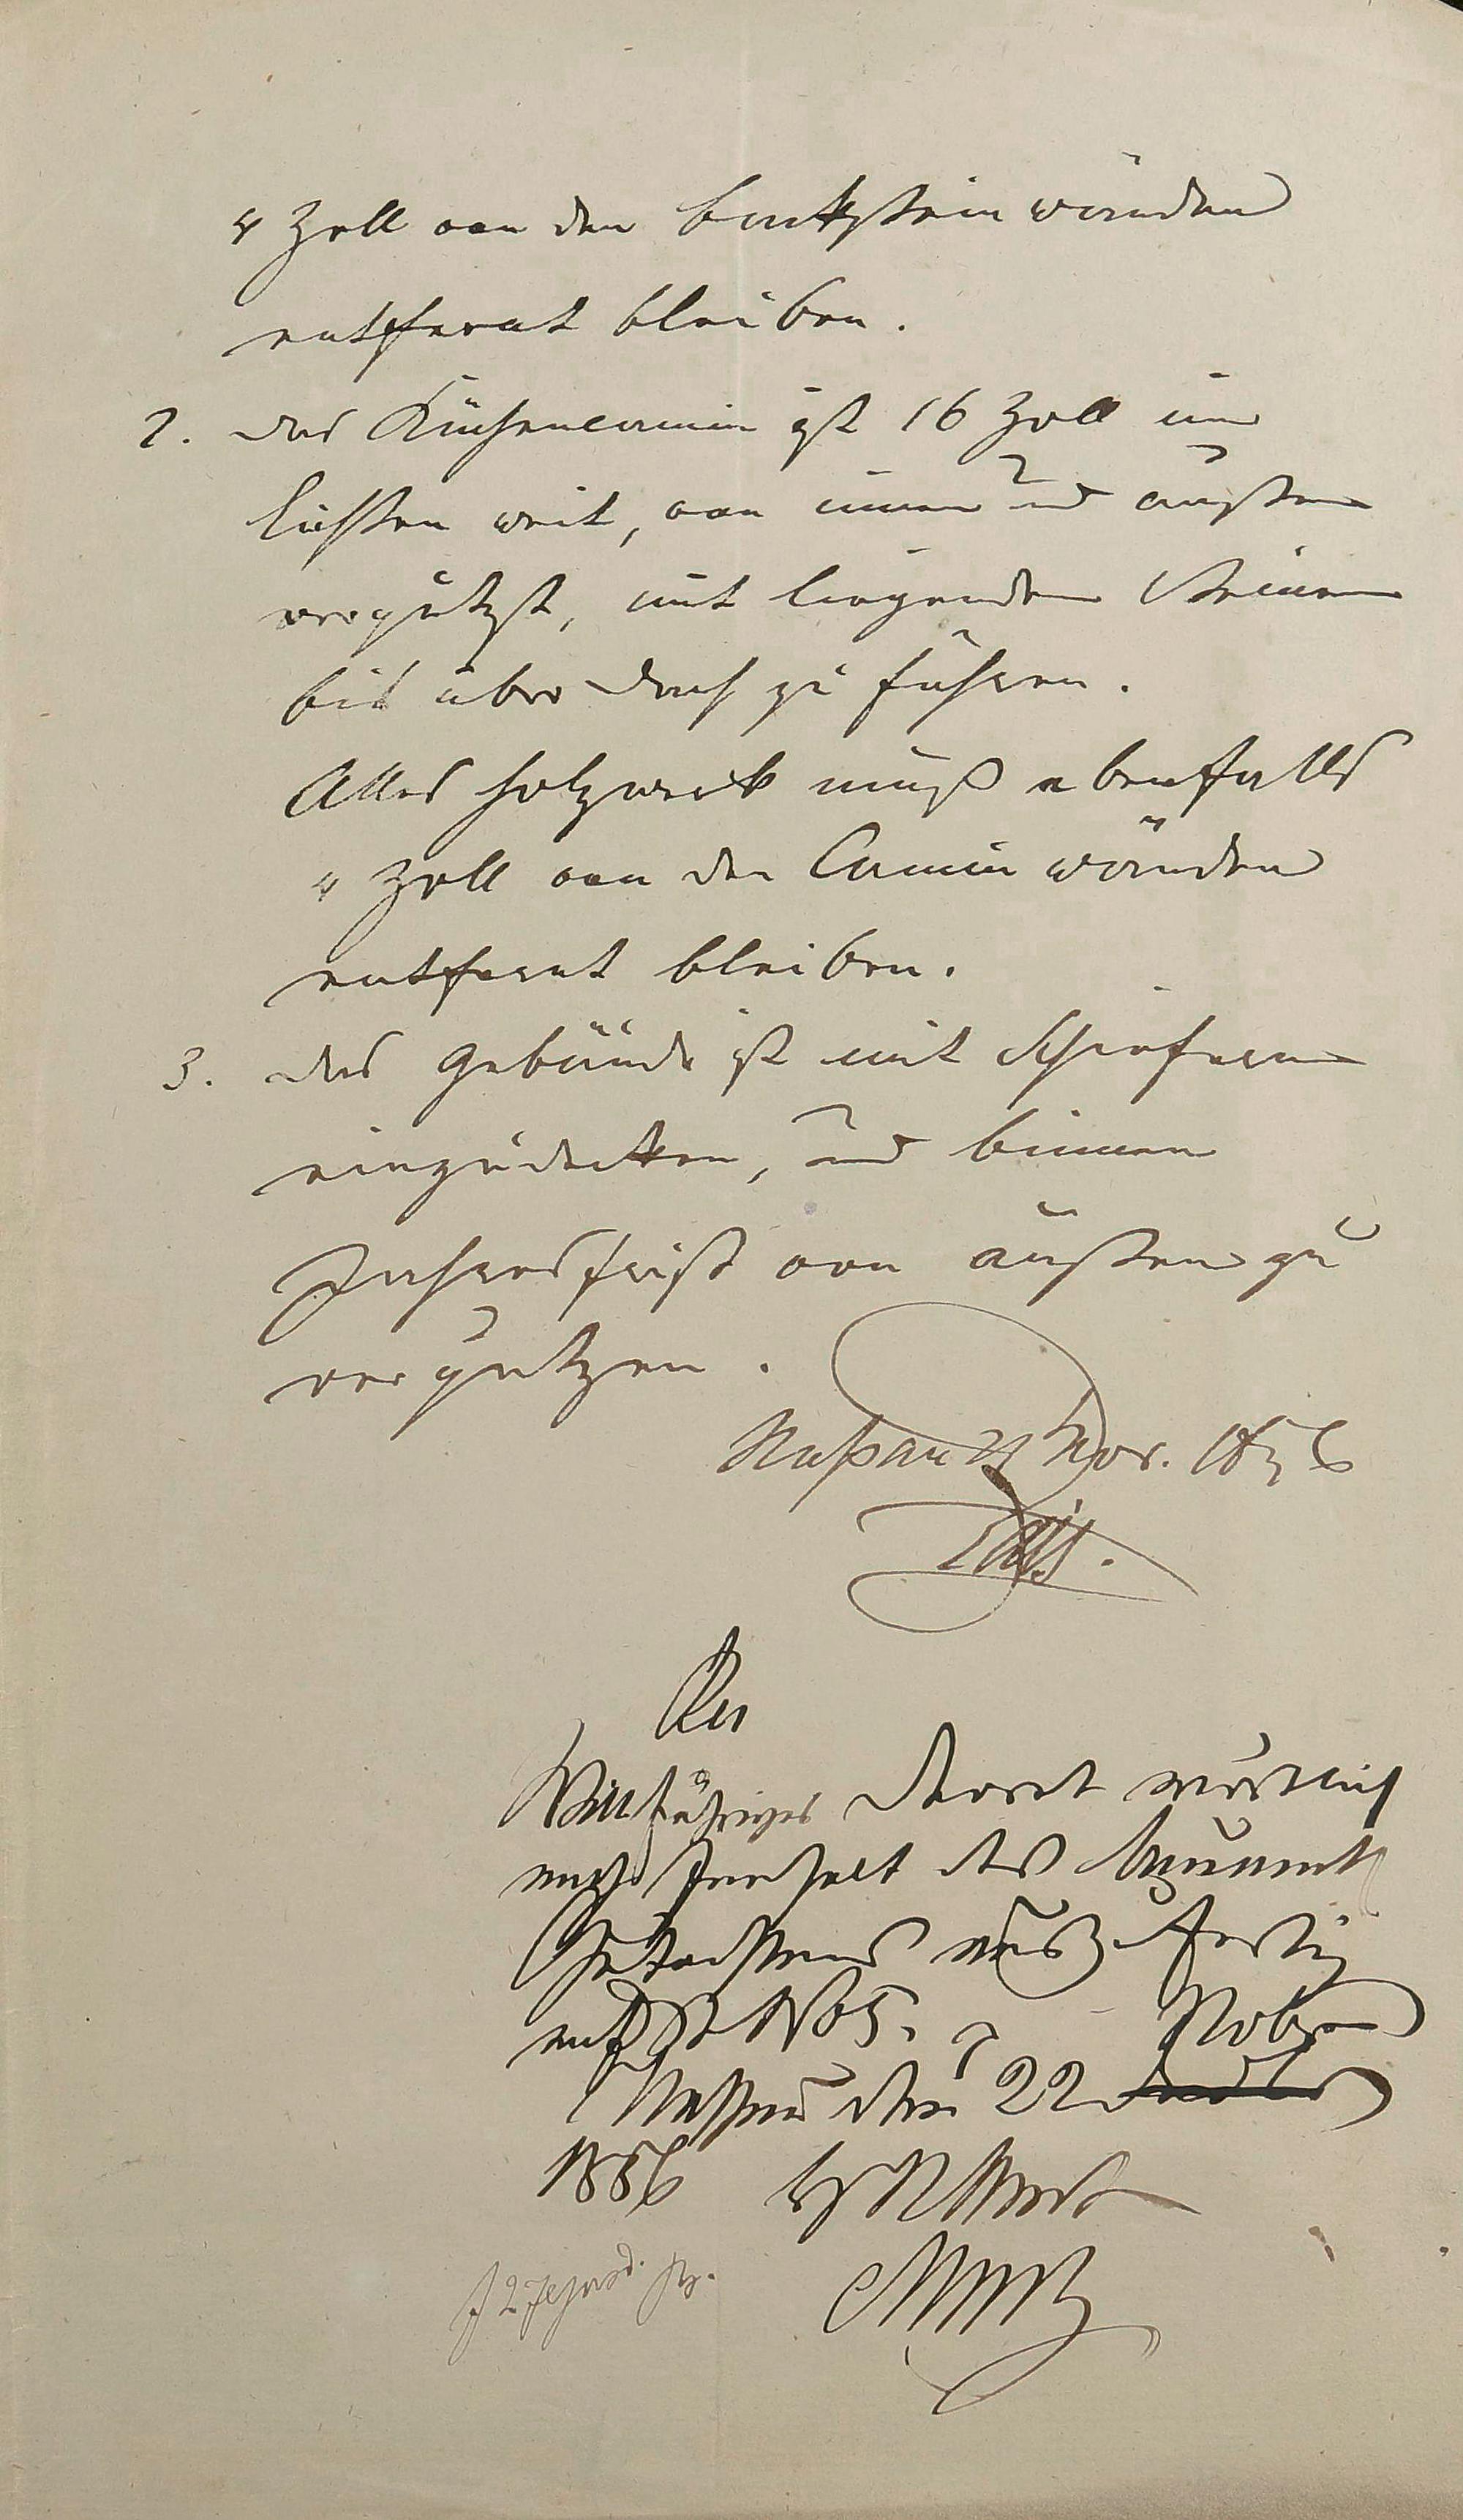 4 Zoll von den backsteinwänden
entfernt bleiben.
2. das Küchencamin ist 16 Zoll im
lichten weit, von innen und außen
verputzt, mit liegenden Steinen
bis über dach zu führen.
Alles holzwerk muß ebenfalls
4 Zoll von den Caminwänden
entfernt bleiben.
3. das Gebäude ist mit Schiefern
einzudecken, und binnen
Jahresfrist von außen zu
verputzen.
Nassau 21 Nov. 1856
Res
Willfähriges Decret
nach Inhalt des
Gutachtens
auf
Nobr
Nassau den 22
1856